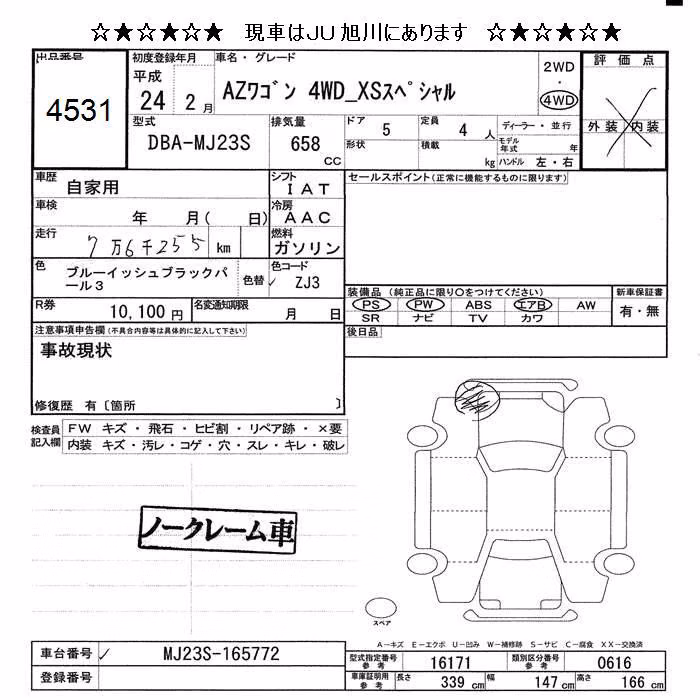 ☆★☆★☆★☆ 現車はJU旭川にあります ☆★☆★☆★☆
出品番号
4531
初度登録年月
平成
24 2 月
車名・グレード
AZワゴン 4WD_XSスペシャル
2WD
・
4WD
評価点
外装 内装
型式
DBA-MJ23S
排気量
658
CC
ドア
5
定員
4 人
形状
積載
kg
ディーラー・並行
モデル
年式
年
ハンドル 左・右
車歴
自家用
シフト
IAT
車検
年 月( 日)
冷房
AAC
走行
7万6千255 km
燃料
ガソリン
色
ブルーイッシュブラックパ
ール3
色替
色コード
ZJ3
R券
10,100 円
名変通知期限
月 日
セールスポイント(正常に機能するものに限ります)
装備品 (純正品に限り○をつけてください)
PS PW ABS エアB AW
SR ナビ TV カワ
新車保証書
有・無
後日品
注意事項申告欄(不具合内容等は具体的に記入して下さい)
事故現状
修復歴 有〔箇所 〕
検査員
記入欄
FW キズ・飛石・ヒビ割・リペア跡・×要
内装 キズ・汚レ・コゲ・穴・スレ・キレ・破レ
ノークレーム車
スペア
A-キズ E-エクボ U-凹み W-補修跡 S-サビ C-腐食 XX-交換済
車台番号
MJ23S-165772
登録番号
型式指定番号
参考
16171
類別区分番号
参考
0616
車庫証明用
参考
長さ
339 cm
幅
147 cm
高さ
166 cm